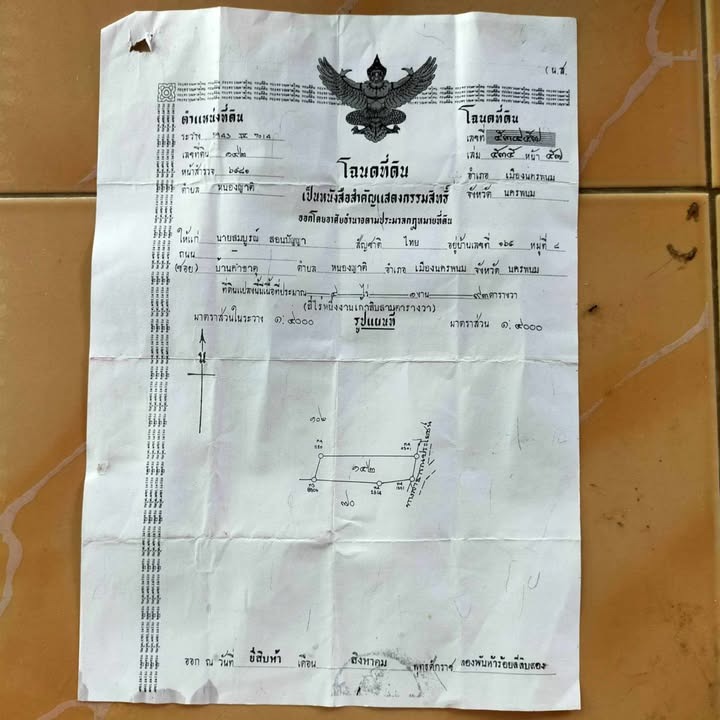 (น.ส.
ตำแหน่งที่ดิน
ระวาง 5943 IV 7014
เลขที่ดิน ๑๕๒
หน้าสำรวจ
ตำบล หนองญาติ
โฉนดที่ดิน
เลขที่
เล่ม ๕๓๕ หน้า ๕๗
อำเภอ เมืองนครพนม
จังหวัด นครพนม
โฉนดที่ดิน
เป็นหนังสือสำคัญแสดงกรรมสิทธิ์
ออกโดยอาศัยอำนาจตามประมวลกฎหมายที่ดิน
ให้แก่ นายสมบูรณ์ สอนปัญญา สัญชาติ ไทย อยู่บ้านเลขที่ ๑๖๑ หมู่ที่ ๘
ถนน
(ซอย) บ้านคำธาตุ ตำบล หนองญาติ อำเภอ เมืองนครพนม จังหวัด นครพนม
ที่ดินแปลงนี้มีเนื้อที่ประมาณ ๔ ไร่ ๑ งาน ๙๓ ตารางวา
(สี่ไร่หนึ่งงานเก้าสิบสามตารางวา)
มาตราส่วนในระวาง ๑:๔๐๐๐ รูปแผนที่ มาตราส่วน ๑:๔๐๐๐
น
๑๐๒
๑๕๒
๗๐
ทางสาธารณประโยชน์
ออก ณ วันที่ ยี่สิบห้า เดือน สิงหาคม พุทธศักราช สองพันห้าร้อยสี่สิบสอง